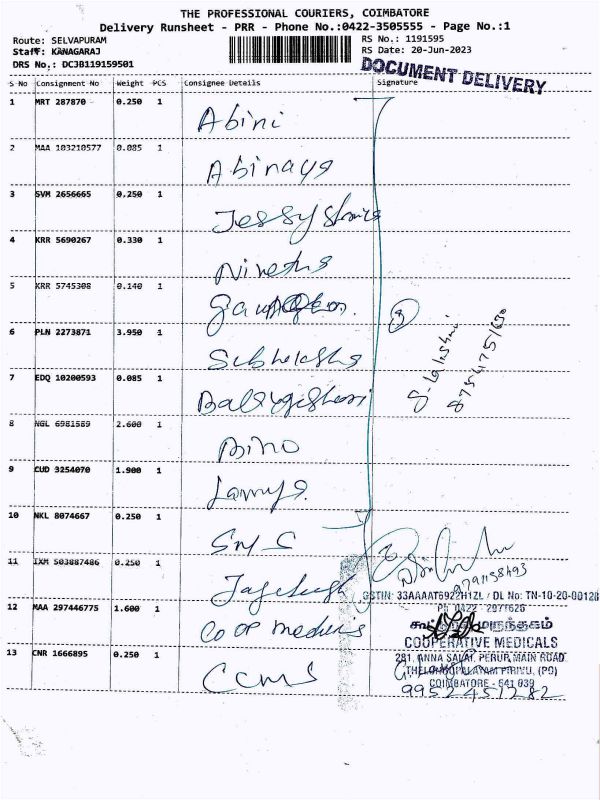 THE PROFESSIONAL COURIERS, COIMBATORE
Delivery Runsheet - PRR - Phone No.:0422-3505555 - Page No.:1
Route: SELVAPURAM RS No.: 1191595
Staff: KANAGARAJ RS Date: 20-Jun-2023
DRS No,: DCJB119159501
DOCUMENT DELIVERY
S No Consignment No Weight PCS Consignee Details Signature
1 MRT 287870 0.250 1 Abini
2 MAA 103210577 0.085 1 Abinaya
3 SVM 2656665 0.250 1 Jessy
4 KRR 5690267 0.330 1
5 KRR 5745308 0.140 1
6 PLN 2273871 3.950 1
7 EDQ 10200593 0.085 1
8 NGL 6981589 2.600 1 Bino
9 CUD 3254070 1.900 1 Lamya
10 NKL 8074667 0.250 1 SMS
11 IXM 503887486 0.250 1
12 MAA 297446775 1.600 1 CO OP
13 CNR 1666895 0.250 1 CCMS
9
8754751630
9791158493
GSTIN: 33AAAAT6922H1ZL / DL No: TN-10-20-00128
COOPERATIVE MEDICALS
281, ANNA SALAI, PERUR MAIN ROAD
COIMBATORE - 641 039
9952451282